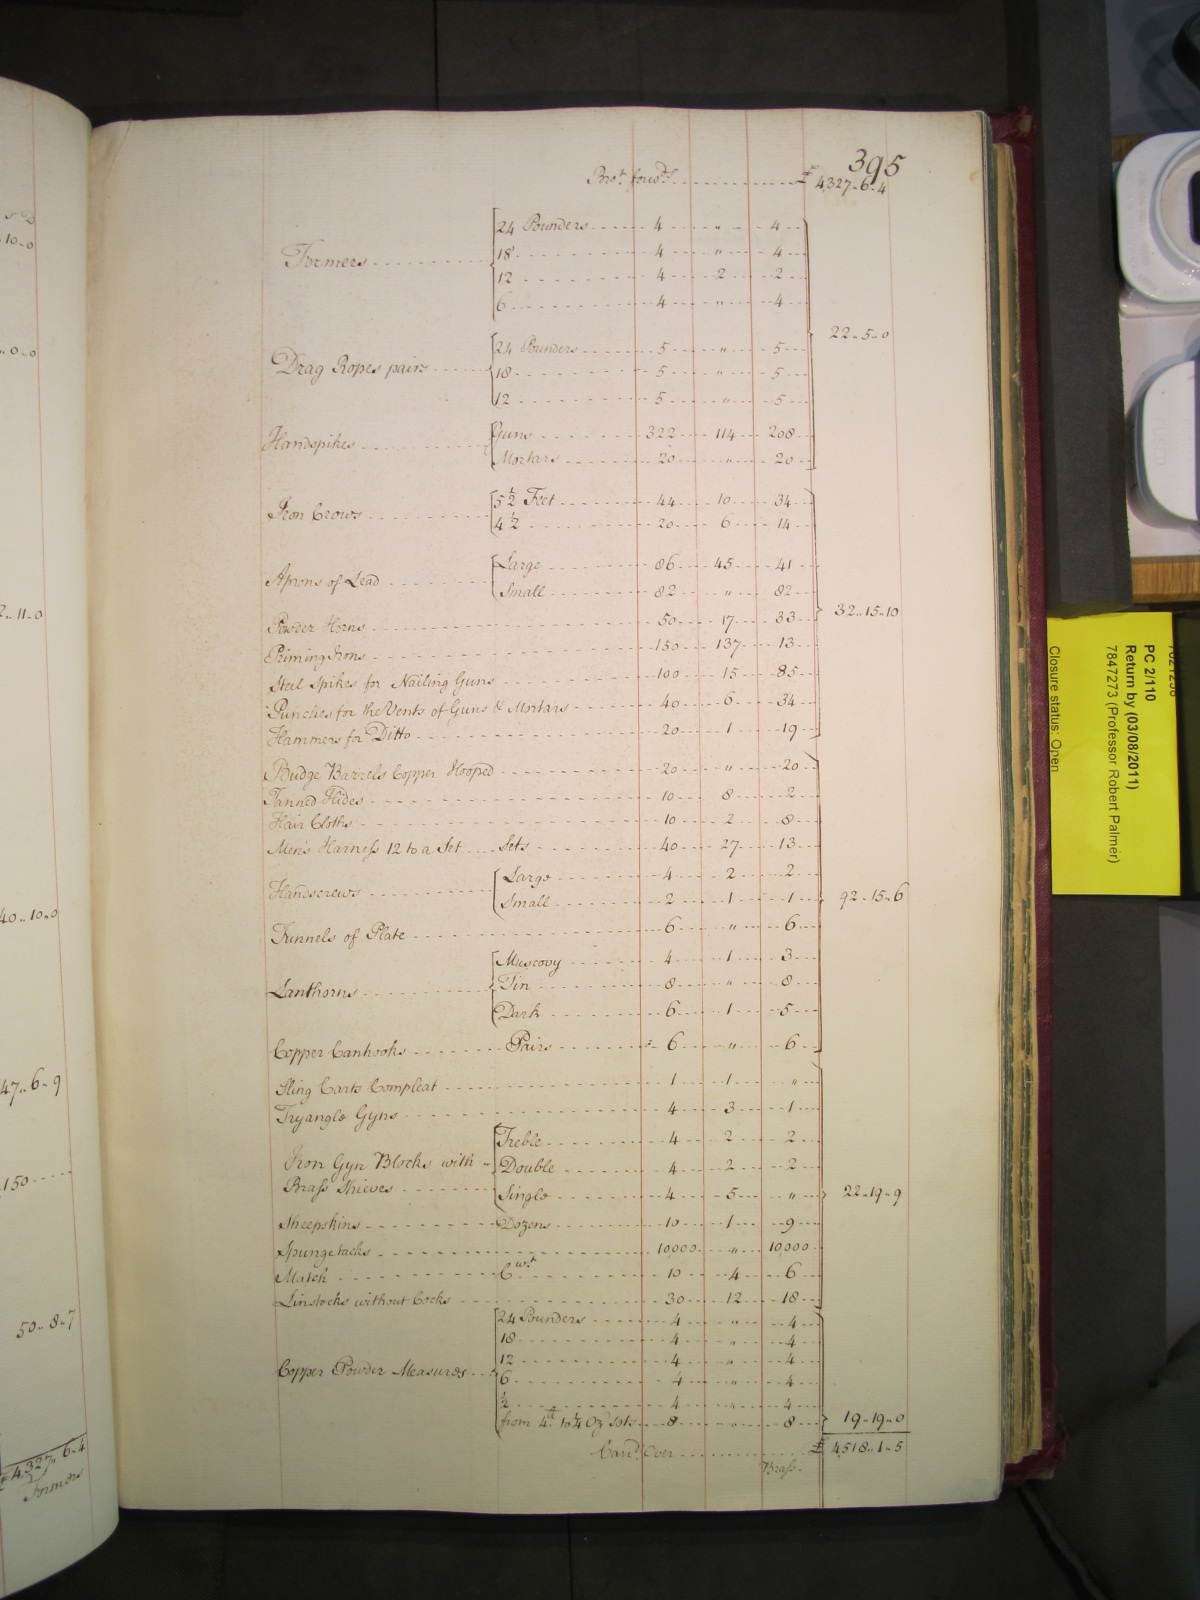 395
Bro.t forw.d £ 4327..6..4
Formers 24 Pounders 4 " 4
18 4 " 4
12 4 2 2
6 4 " 4
22..5..0
Drag Ropes pairs 24 Pounders 5 " 5
18 5 " 5
12 5 " 5
Handspikes Guns 322 114 208
Mortars 20 " 20
Iron Crows 5 1/2 Feet 44 10 34
4 1/2 20 6 14
Aprons of Lead Large 86 45 41
Small 82 " 82
32..15..10
Powder Horns 50 17 33
Priming Irons 150 137 13
Steel Spikes for Nailing Guns 100 15 85
Punches for the Vents of Guns & Mortars 40 6 34
Hammers for Ditto 20 1 19
Budge Barrels Copper Hooped 20 " 20
Tanned Hides 10 8 2
Hair Cloths 10 2 8
Men's Harness 12 to a Set Sets 40 27 13
Handscrews Large 4 2 2
Small 2 1 1
92..15..6
Funnels of Plate 6 " 6
Lanthorns Muscovy 4 1 3
Tin 8 " 8
Dark 6 1 5
Copper Canhooks Pairs 6 " 6
Sling Carts Compleat 1 1 "
Tryangle Gyns 4 3 1
Iron Gyn Blocks with Brass Shieves Treble 4 2 2
Double 4 2 2
Single 4 5 "
22..19..9
Sheepskins Dozens 10 1 9
Spunge tacks 10000 " 10,000
Match C.wt 10 4 6
Linstocks without Cocks 30 12 18
Copper Powder Measures 24 Pounders 4 " 4
18 4 " 4
12 4 " 4
6 4 " 4
1/2 4 " 4
from 4 lb to 1/4 Oz Sets 8 " 8
19..19..0
Carr.d Over £ 4518..1..5
Brass.
S D
10..0
..0..0
2..11..0
40..10..0
47..6..9
150
50..8..7
£4327..6..4
Formers
PC 2/110
Return by (03/08/2011)
7847273 (Professor Robert Palmer)
Closure status: Open